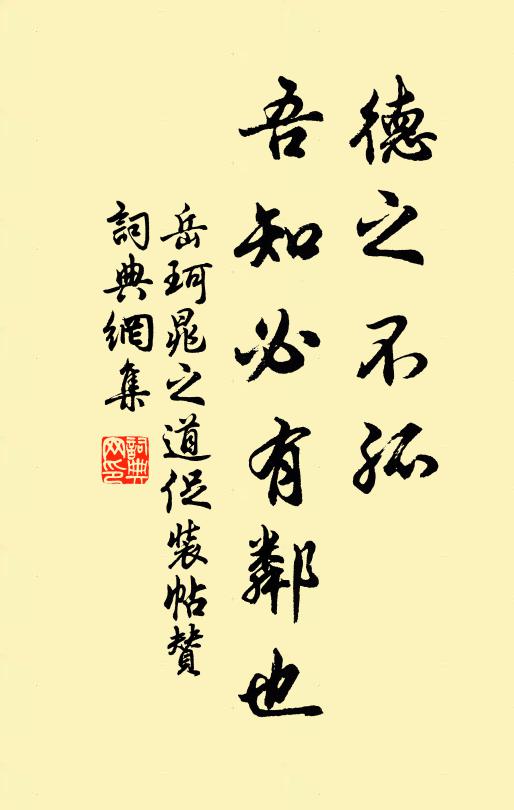 德之不孤
吾知必有鄰也
岳珂晁之道促裝帖贊
詞典網集
詞典網印